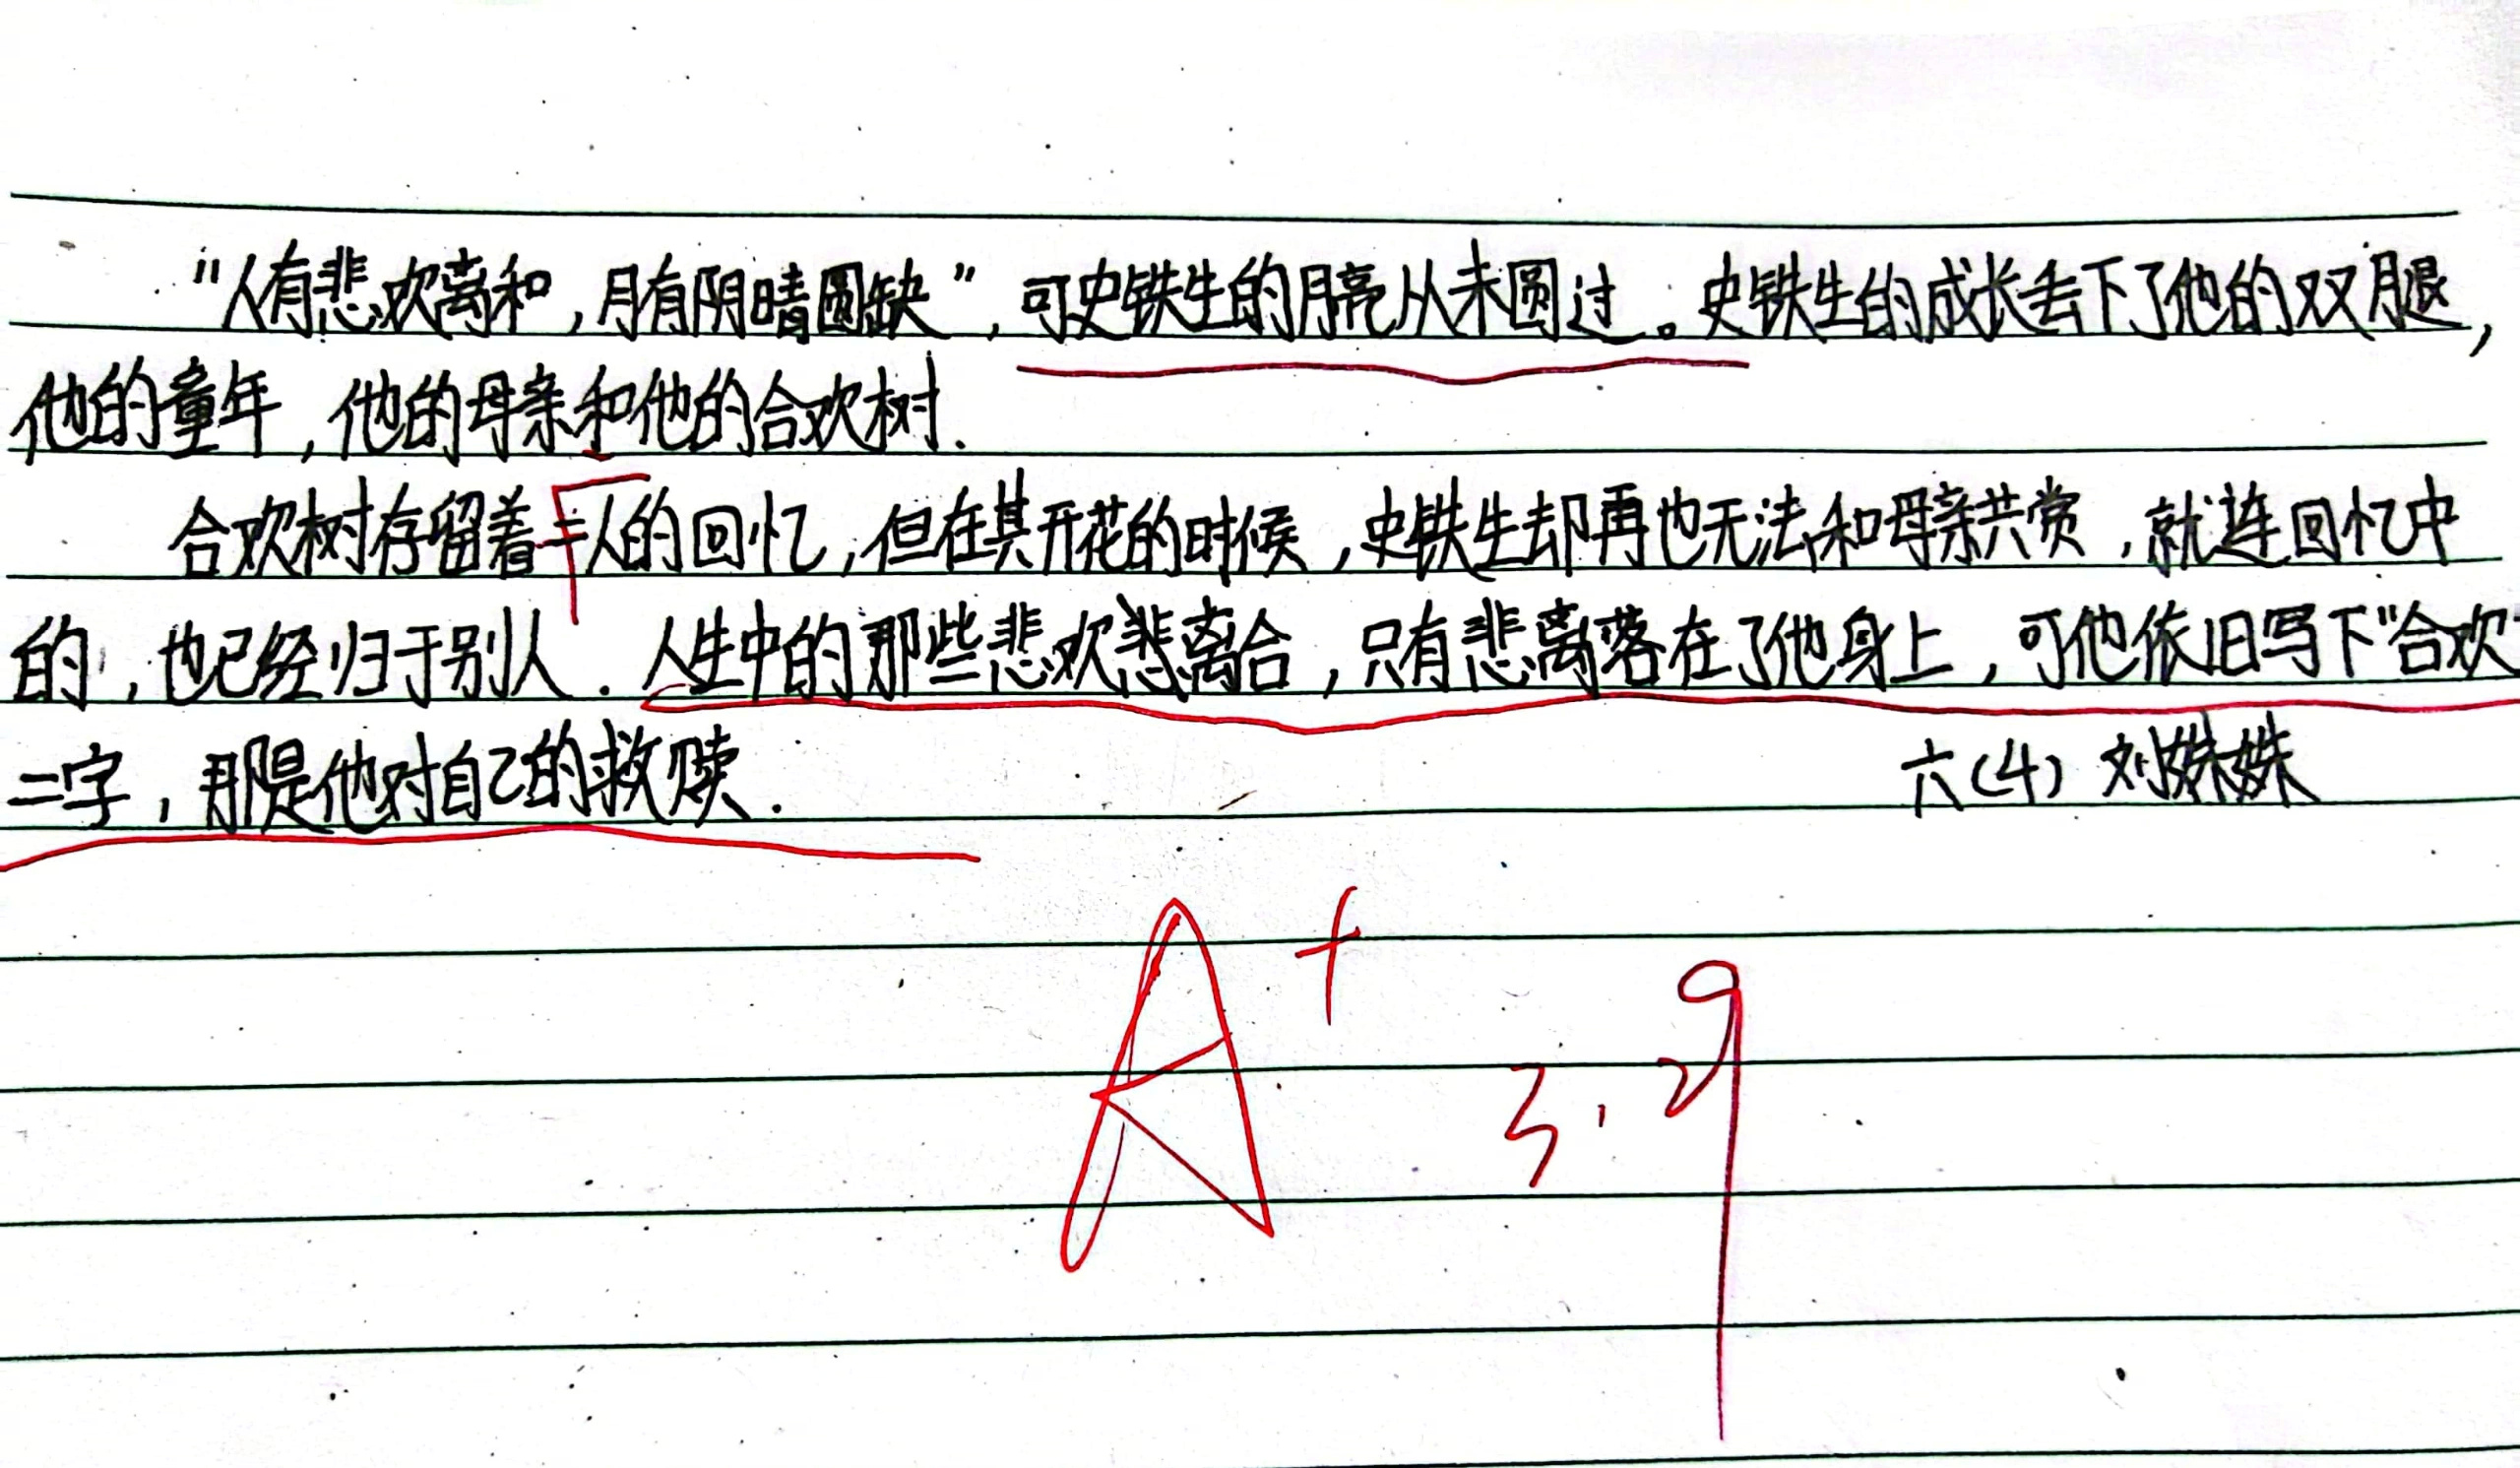 “人有悲欢离和，月有阴晴圆缺”，可史铁生的月亮从未圆过。史铁生的成长丢下了他的双腿，
他的童年，他的母亲和他的合欢树.
合欢树存留着二人的回忆，但在其开花的时候，史铁生却再也无法和母亲共赏，就连回忆中
的，也已经归于别人．人生中的那些悲欢离合，只有悲离落在了他身上，可他依旧写下“合欢”
二字，那是他对自己的救赎．
六(4) 刘姝姝
A+
3.29